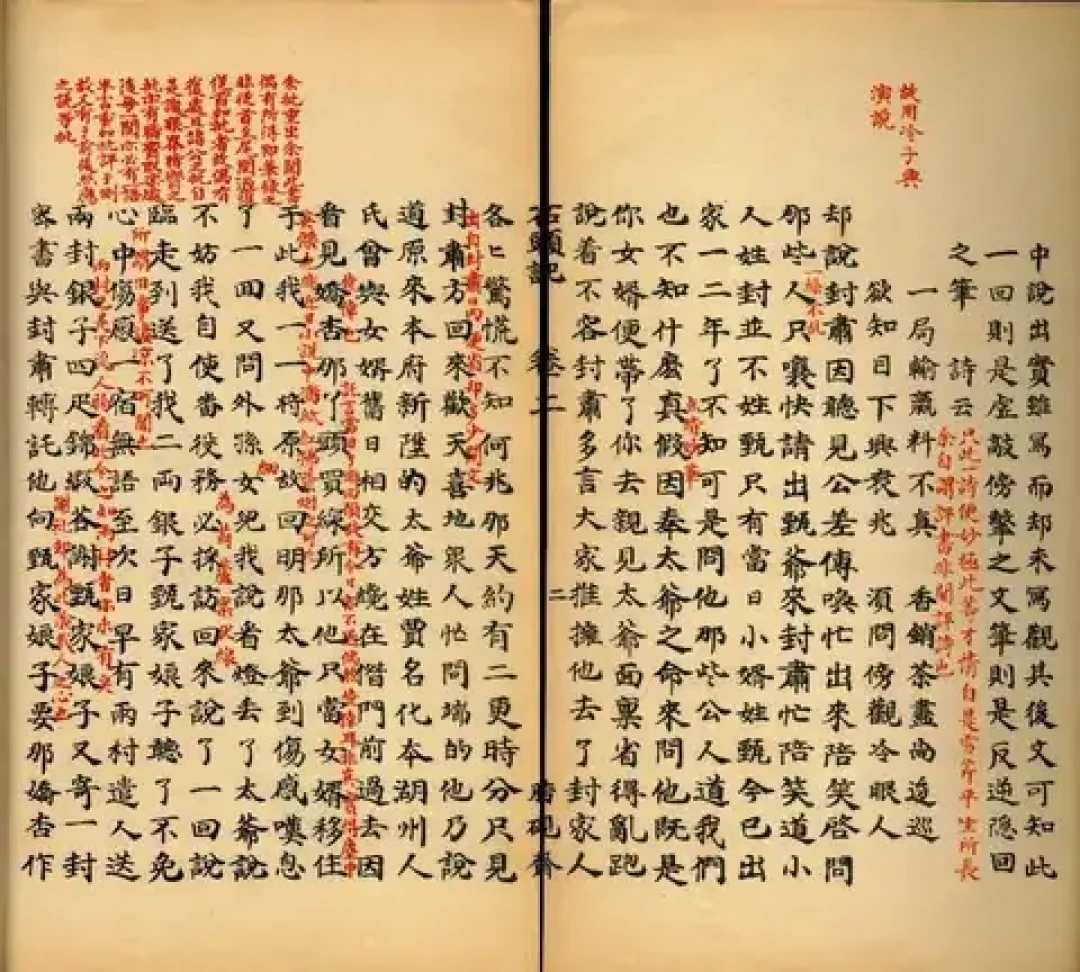 中說出實雖寫而却來寫觀其後文可知此
一回則是虛敲傍擊之文筆則是反逆隐回
之筆　詩云
只此一詩便妙極此等才情自是雪芹平生所長
余自謂評書非關評詩也
一局輸贏料不真　香銷茶盡尚逡巡
故用冷子興
演說
欲知目下興衰兆　須問傍觀冷眼人
却說封肅因聽見公差傳喚忙出來陪笑啓問
那些人只嚷快請出甄爺來封肅忙陪笑道小
人姓封並不姓甄只有當日小婿姓甄今已出
家一二年了不知可是問他那些公人道我們
也不知什麼真假因奉太爺之命來問他既是
你女婿便帶了你去親見太爺面禀省得亂跑
說着不容封肅多言大家推擁他去了封家人
石頭記　卷二　二　脂硯齋
各〻驚慌不知何兆那天約有二更時分只見
封肅方回來歡天喜地衆人忙問端的他乃說
道原來本府新陞的太爺姓賈名化本湖州人
氏曾與女婿舊日相交方纔在偺門前過去因
看見嬌杏那丫頭買線所以他只當女婿移住
于此我一一將原故回明那太爺到傷感嘆息
了一回又問外孫女兒我說看燈丢了太爺說
不妨我自使番役務必採訪回來說了一回說
臨走到送了我二兩銀子甄家娘子聽了不免
心中傷感一宿無語至次日早有雨村遣人送
兩封銀子四疋錦緞荅謝甄家娘子又寄一封
宻書與封肅轉託他向甄家娘子要那嬌杏作
余批重出余閱此書
偶有所得即筆錄之
非從首至尾閱過復
從首加批者故偶有
復處且諸公之批自
是諸公眼界脂齋之
批亦有脂齋取樂處
後每一閱亦必有一語
半言重加批評于側
故又有于前後照應
之說等批